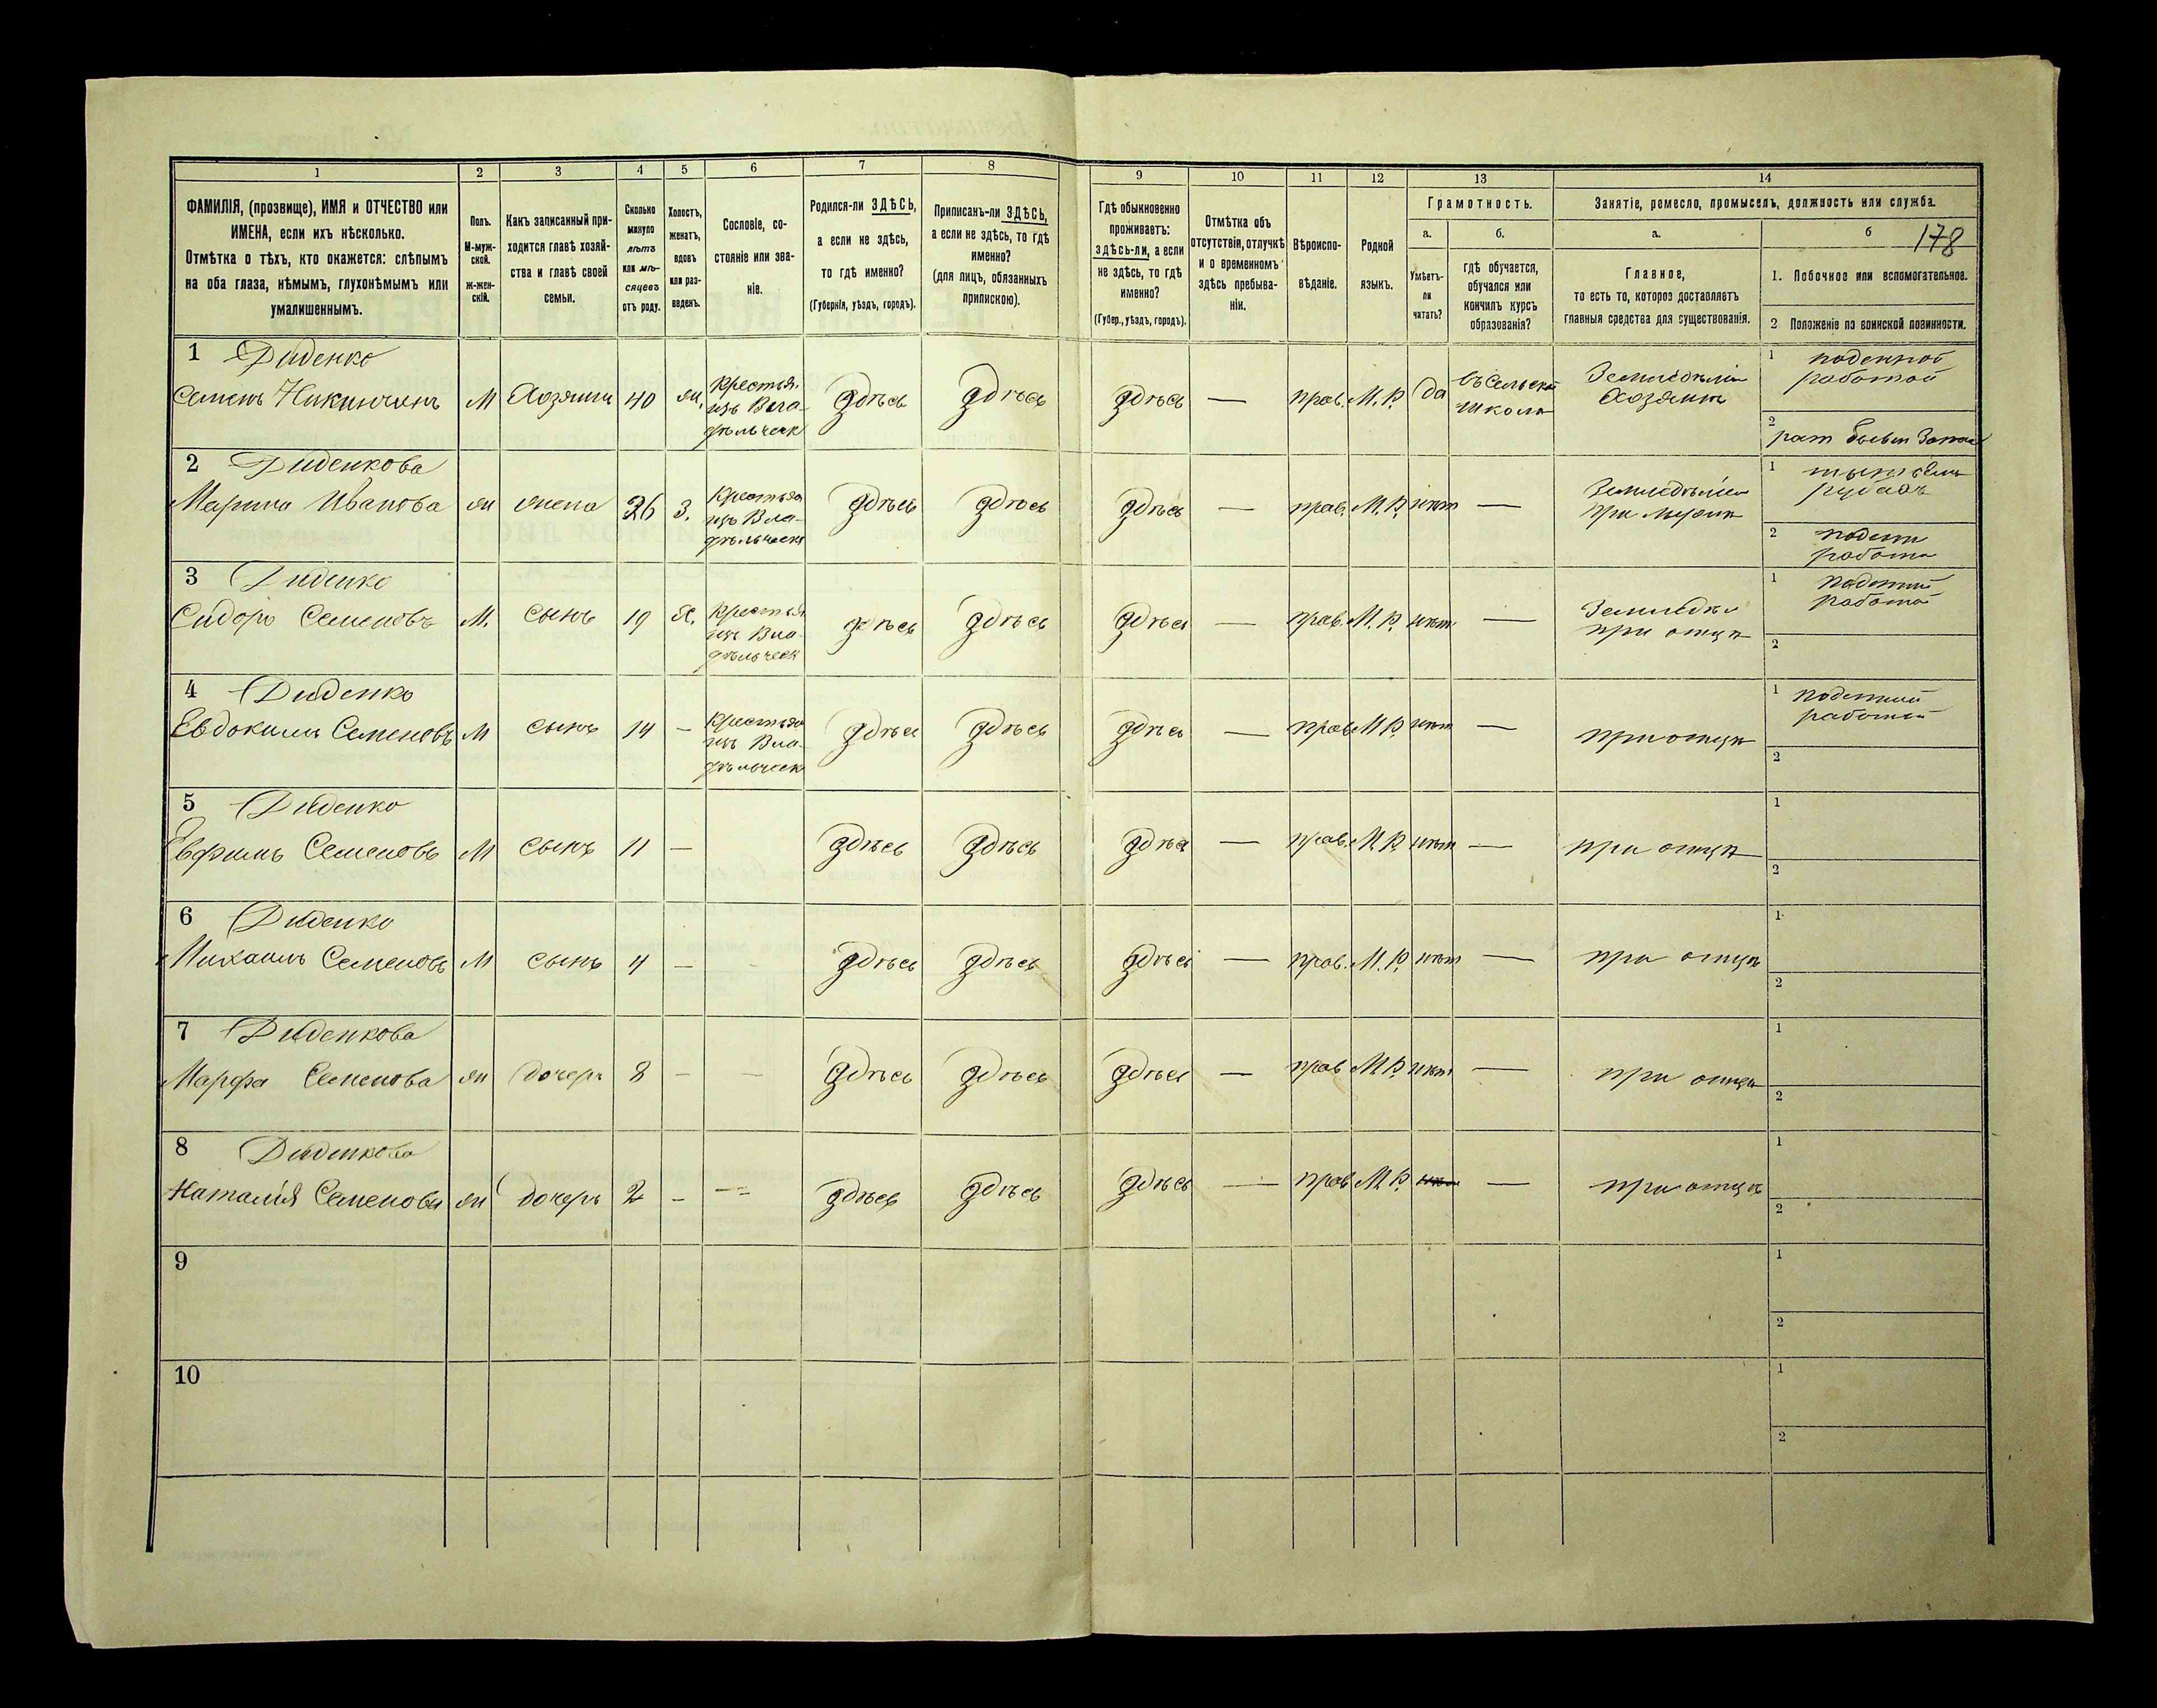 1 2 3 4 5 6 7 8 9 10 11 12 13 14
ФАМИЛІЯ, (прозвище), ИМЯ и ОТЧЕСТВО или
ИМЕНА, если ихъ нѣсколько.
Отмѣтка о тѣхъ, кто окажется: слѣпымъ
на оба глаза, нѣмымъ, глухонѣмымъ или
умалишеннымъ.
Полъ.
М-муж-
ской.
Ж-жен-
скій.
Какъ записанный при-
ходится главѣ хозяй-
ства и главѣ своей
семьи.
Сколько
минуло
лѣтъ
или мѣ-
сяцевъ
отъ роду.
Холостъ,
женатъ,
вдовъ
или раз-
веденъ.
Сословіе, со-
стояніе или зва-
ніе.
Родился-ли ЗДѢСЬ,
а если не здѣсь,
то гдѣ именно?
(Губернія, уѣздъ, городъ).
Приписанъ-ли ЗДѢСЬ,
а если не здѣсь, то гдѣ
именно?
(для лицъ, обязанныхъ
припискою).
Гдѣ обыкновенно
проживаетъ:
здѣсь-ли, а если
не здѣсь, то гдѣ
именно?
(Губер., уѣздъ, городъ).
Отмѣтка объ
отсутствіи, отлучкѣ
и о временномъ
здѣсь пребыва-
ніи.
Вѣроиспо-
вѣданіе.
Родной
языкъ.
Грамотность.
а.
Умѣетъ-
ли
читать?
б.
гдѣ обучается,
обучался или
кончилъ курсъ
образованія?
Занятіе, ремесло, промыселъ, должность или служба.
а.
Главное,
то есть то, которое доставляетъ
главныя средства для существованія.
б 178
1. Побочное или вспомогательное.
2 Положеніе по воинской повинности.
1 Диденко
Семенъ Никитинъ М Хозяинъ 40 ж. Крестья. здѣсь здѣсь здѣсь — прав. М. Р. да въ сельской Земледѣліе 1 поденной
изъ Вла- школѣ Хозяинъ работой
дѣльческ 2
2 Диденкова
Марина Иванова ж жена 36 З. Крестья здѣсь здѣсь здѣсь — прав. М. Р. нѣт — Земледѣліе 1
изъ Вла- при мужѣ
дѣльческ 2 поден
работа
3 Диденко
Сидоръ Семеновъ М. сынъ 19 Х. Крестья здѣсь здѣсь здѣсь — прав. М. Р. нѣт — Земледѣл 1 поденный
изъ Вла- при отцѣ работой
дѣльческ 2
4 Диденко
Евдокимъ Семеновъ М сынъ 14 — Крестья здѣсь здѣсь здѣсь — прав М Р. нѣт — при отцѣ 1 поденный
изъ Вла- работой
дѣльческ 2
5 Диденко
Евфимъ Семеновъ М сынъ 11 — здѣсь здѣсь здѣсь — прав. М. Р. нѣт — при отцѣ 1
2
6 Диденко
Михаилъ Семеновъ М сынъ 4 — — здѣсь здѣсь здѣсь — прав. М. Р. нѣт — при отцѣ 1
2
7 Диденкова
Марфа Семенова ж дочерь 8 — — здѣсь здѣсь здѣсь — прав М. Р. нѣт — при отцѣ 1
2
8 Диденкова
Наталія Семенова ж дочерь 2 — — здѣсь здѣсь здѣсь — прав М. Р. нѣт — при отцѣ 1
2
9 1
2
10 1
2